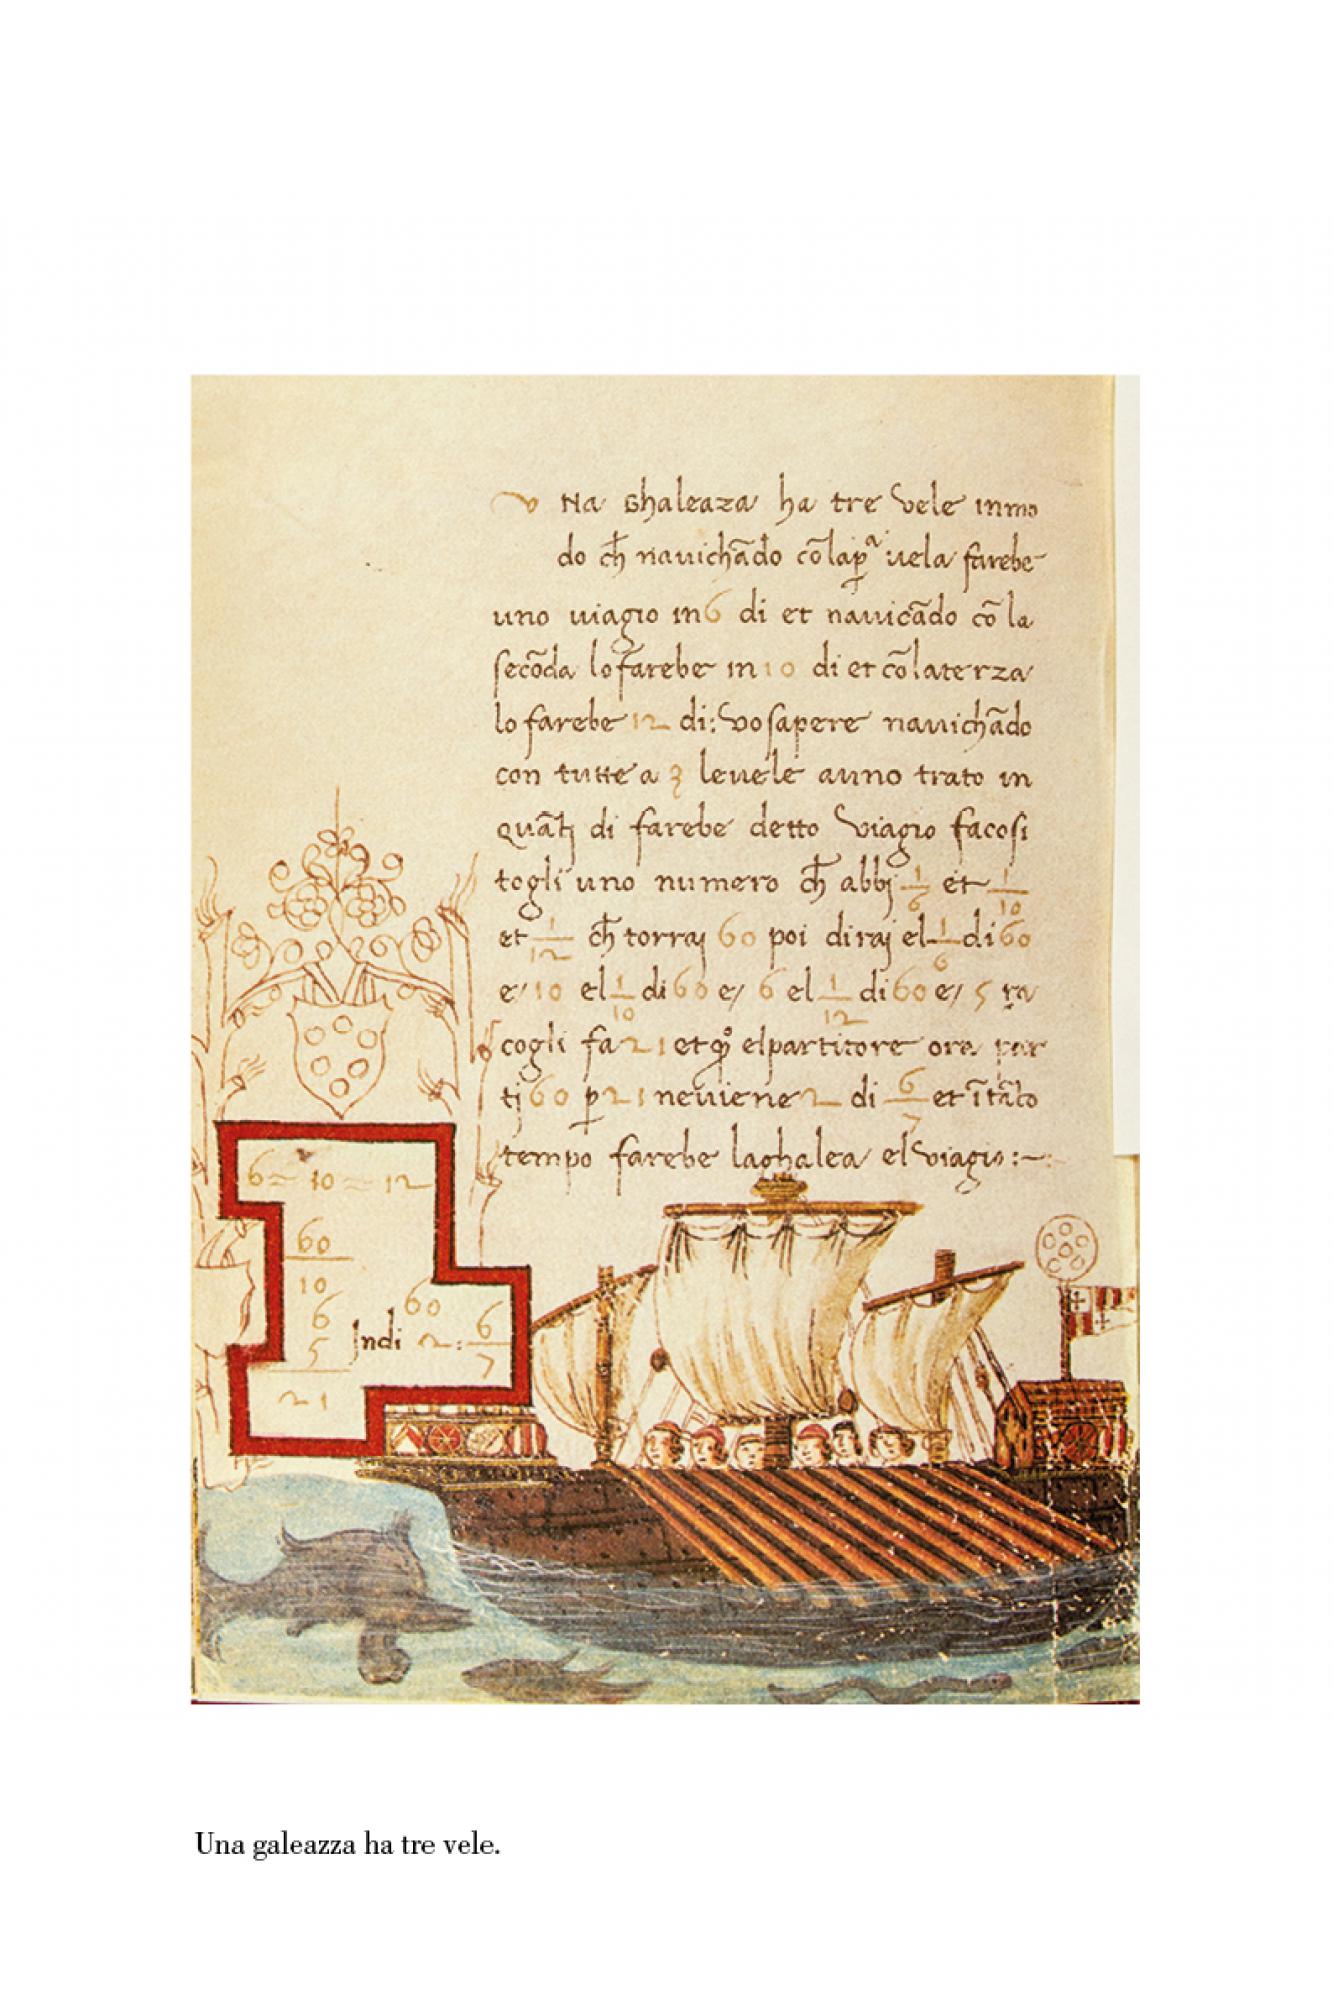 vna Ghaleaza ha tre vele inmo
do ch̄ nauichādo cōlapͣ uela farebe
uno uiagio in 6 di et nauicādo cō la
secōda lo farebe in 10 di et cōlaterza
lo farebe 12 di: vo sapere nauichādo
con tutte a 3 leuele auno trato in
quātj di farebe detto viagio fa cosi
togli uno numero ch̄ abbj 1/6 et 1/10
et 1/12 ch̄ torraj 60 poi diraj el 1/6 di 60
e/ 10 el 1/10 di 60 e/ 6 el 1/12 di 60 e/ 5 ra
cogli fa 21 et elpartitore ora par
tj 60 p̱ 21 neuiene 2 di 6/7 et ītāto
tempo farebe laghalea el viagio :~
6 = 10 = 12
60
10
6
5
21
60
Indi 2 : 6/7
Una galeazza ha tre vele.